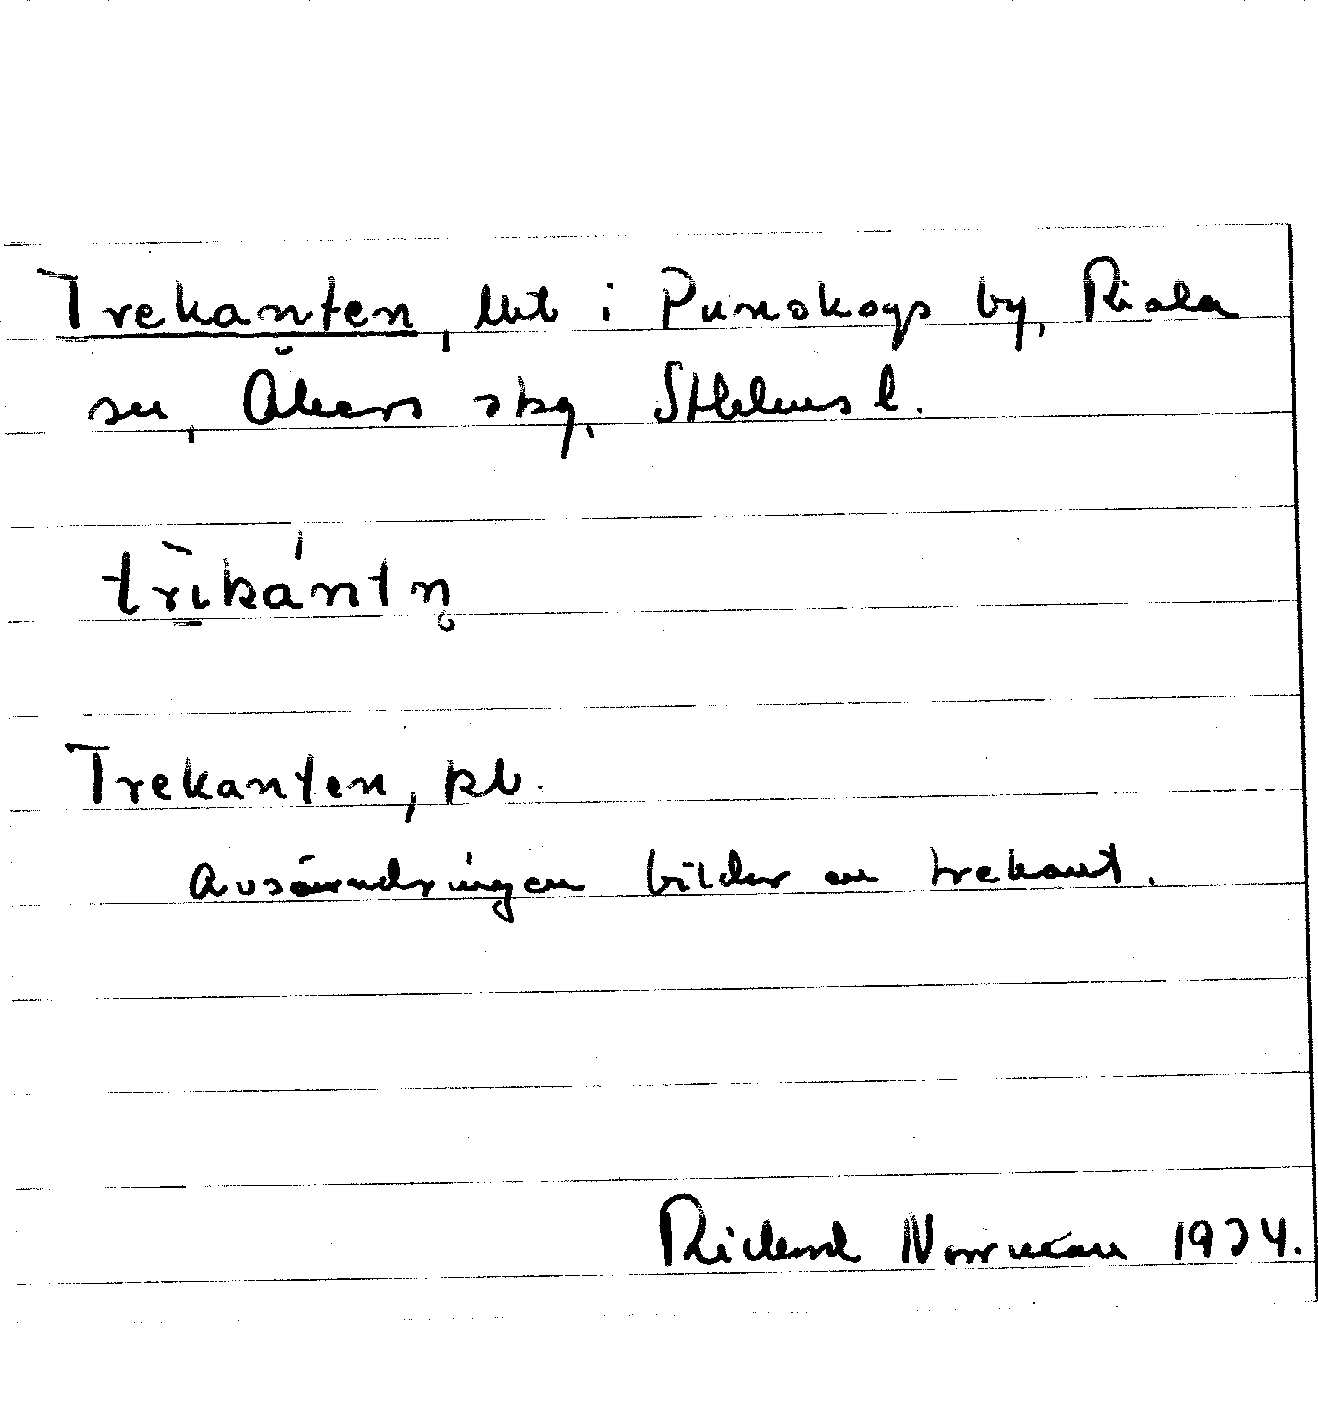 Trekanten, lht i Punskogs by, Riala
sn, Åkers skg, Sthlms l.
trìkántn̥
Trekanten, kb.
Avsöndringen bildar en trekant.
Rickard Norrman 1934.